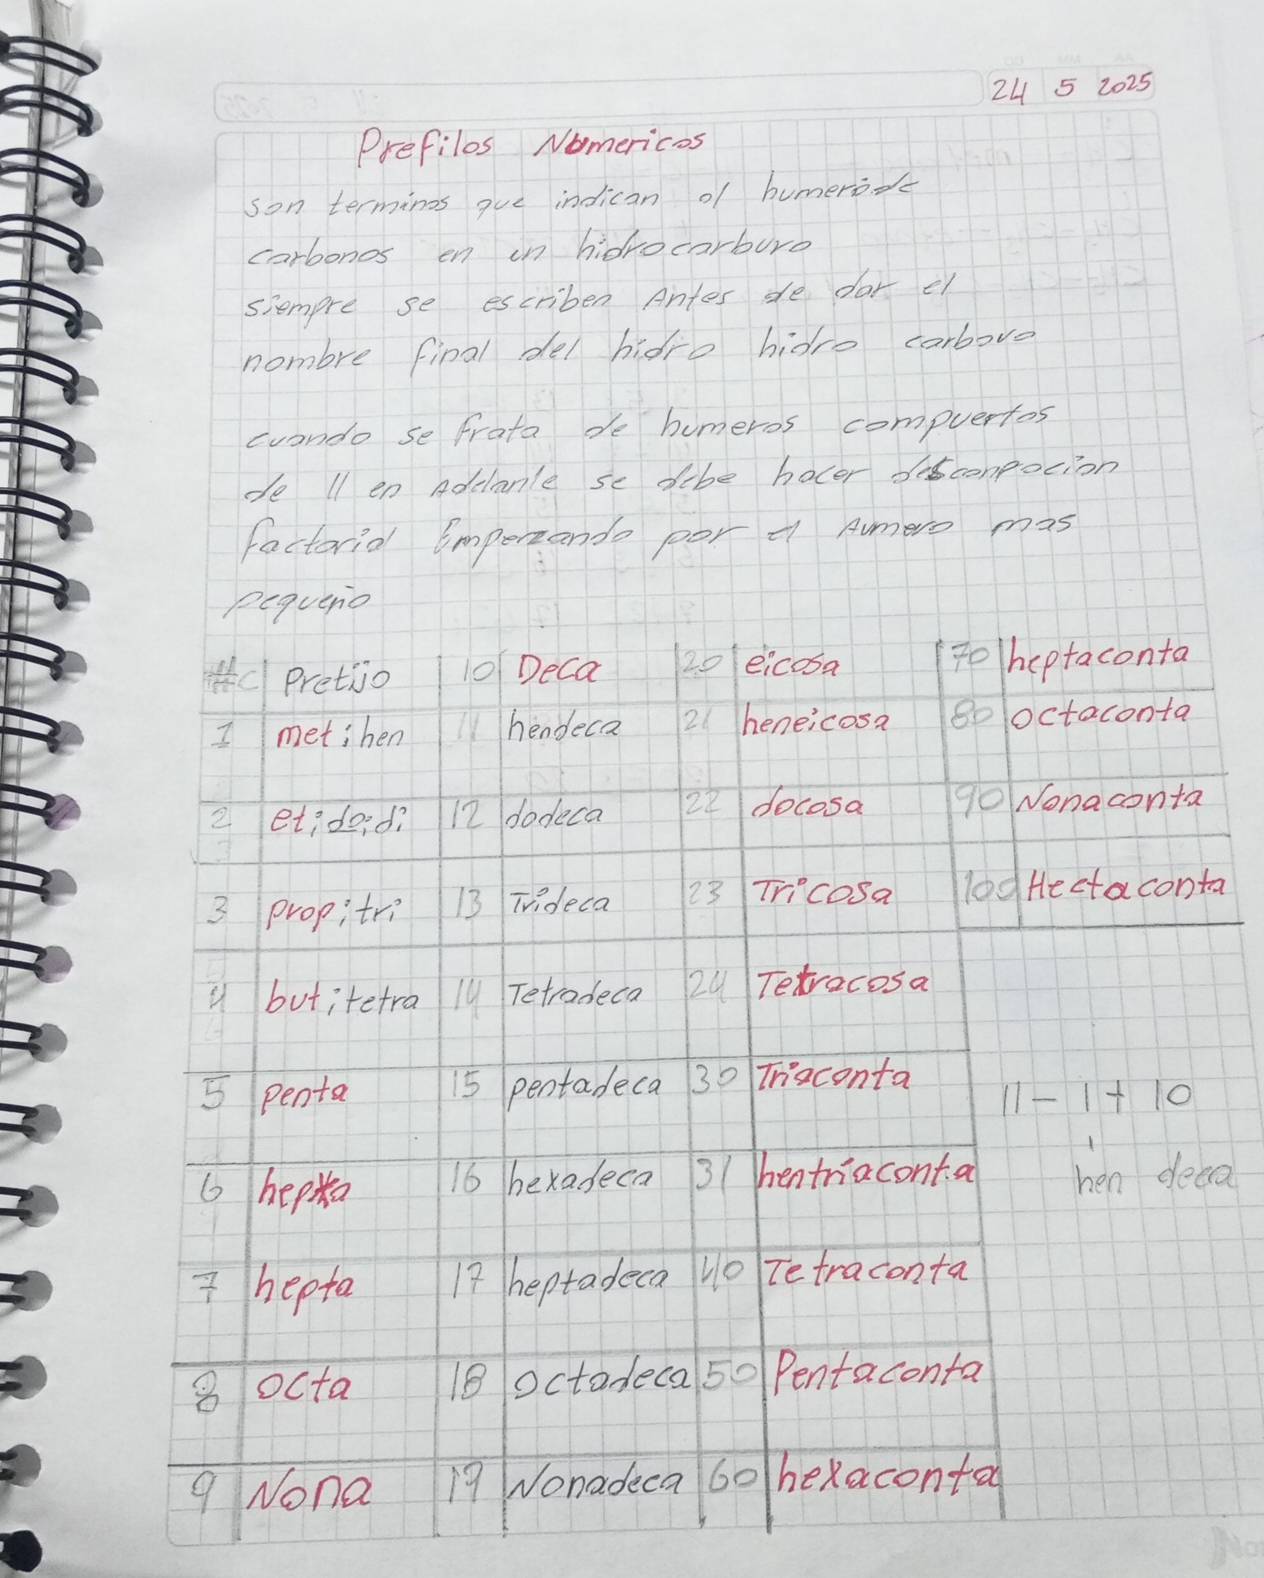 24 5 2025
Prefilos Numericos
son terminos que indican el humero de
carbonos en un hidrocarburo
siempre se escriben Antes de dar el
nombre final del hidro hidro carburo
cuando se frata de humeros compuertos
de 11 en Adelante se debe hacer desconpocion
factorial Emperzando por el Numero mas
pequeño
#c Pretijo 10 Deca 20 eicosa 70 heptaconta
1 met;hen 11 hendeca 21 heneicosa 80 octaconta
2 et;do;di 12 dodeca 22 docosa 90 Nonaconta
3 prop;tri 13 Trideca 23 Tricosa 100 Hectaconta
4 but;tetra 14 Tetradeca 24 Tetracosa
5 penta 15 pentadeca 30 Triaconta
11 - 1 + 10
6 16 hexadeca 31 hentriaconta
hen deca
7 hepta 17 heptadeca 40 Tetraconta
8 octa 18 octadeca 50 Pentaconta
9 Nona 19 Nonadeca 60 hexaconta